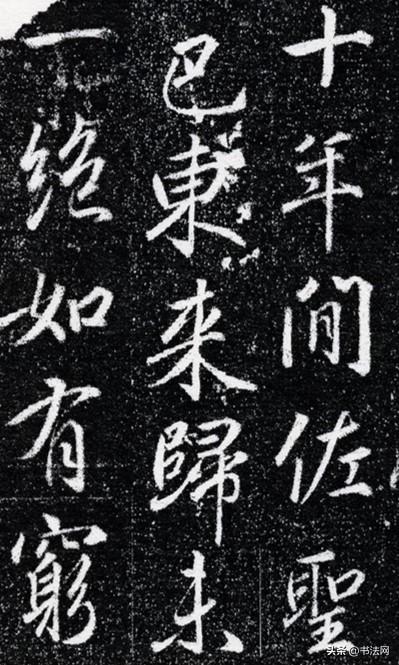 十年間佐聖
巴東来歸未
一絶如有窮
头条 @书法网